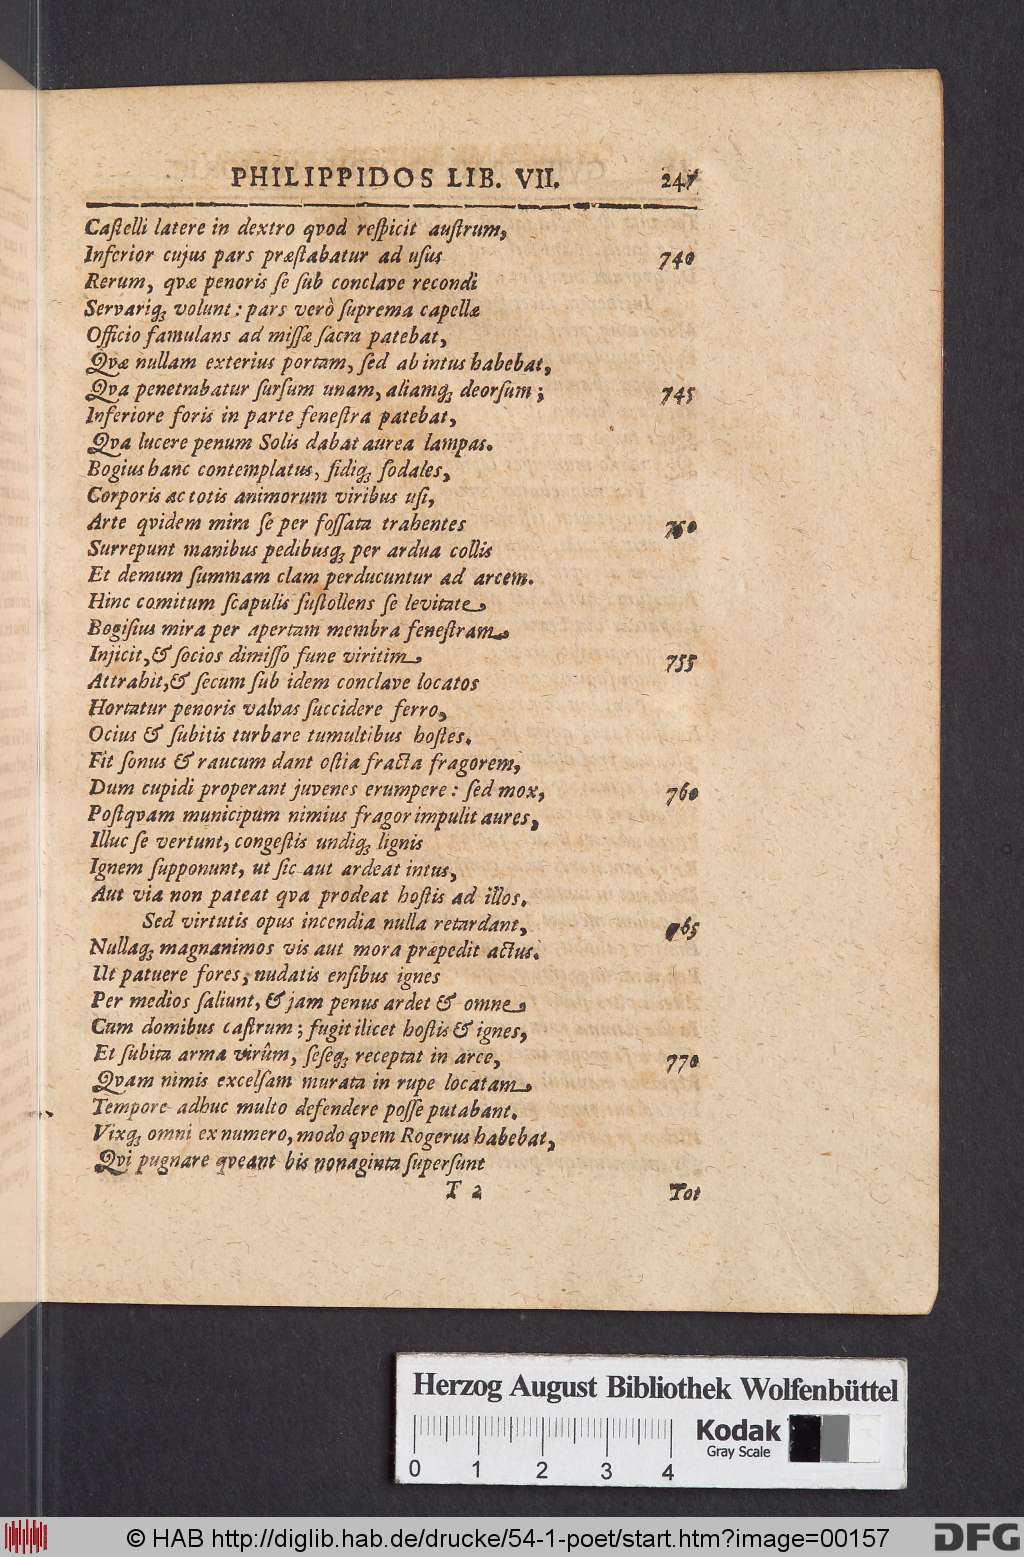 PHILIPPIDOS LIB. VII. 247
Caſtelli latere in dextro qvod reſpicit auſtrum,
Inferior cujus pars præſtabatur ad uſus 740
Rerum, qvæ penoris ſe ſub conclave recondi
Servariq; volunt: pars verò ſuprema capellæ
Officio famulans ad miſſæ ſacra patebat,
Qvæ nullam exterius portam, ſed ab intus habebat,
Qva penetrabatur ſurſum unam, aliamq; deorſum; 745
Inferiore foris in parte feneſtra patebat,
Qva lucere penum Solis dabat aurea lampas.
Bogius hanc contemplatus, fidiq; ſodales,
Corporis ac totis animorum viribus uſi,
Arte qvidem mira ſe per foſſata trahentes 750
Surrepunt manibus pedibusq; per ardua collis
Et demum ſummam clam perducuntur ad arcem.
Hinc comitum ſcapulis ſuſtollens ſe levitate
Bogiſius mira per apertam membra feneſtram
Injicit, & ſocios dimiſſo fune viritim 755
Attrahit, & ſecum ſub idem conclave locatos
Hortatur penoris valvas ſuccidere ferro,
Ocius & ſubitis turbare tumultibus hoſtes.
Fit ſonus & raucum dant oſtia fracta fragorem,
Dum cupidi properant juvenes erumpere: ſed mox, 760
Poſtqvam municipum nimius fragor impulit aures,
Illuc ſe vertunt, congeſtis undiq; lignis
Ignem ſupponunt, ut ſic aut ardeat intus,
Aut via non pateat qva prodeat hoſtis ad illos.
Sed virtutis opus incendia nulla retardant, 765
Nullaq; magnanimos vis aut mora præpedit actus.
Ut patuere fores, nudatis enſibus ignes
Per medios ſaliunt, & jam penus ardet & omne
Cum domibus caſtrum; fugit ilicet hoſtis & ignes,
Et ſubita arma virûm, ſeſeq; receptat in arce, 770
Qvam nimis excelſam murata in rupe locatam
Tempore adhuc multo defendere poſſe putabant.
Vixq; omni ex numero, modo qvem Rogerus habebat,
Qvi pugnare qveant bis nonaginta ſuperſunt
T 2 Tot
Herzog August Bibliothek Wolfenbüttel
0 1 2 3 4
Kodak
Gray Scale
© HAB http://diglib.hab.de/drucke/54-1-poet/start.htm?image=00157
DFG